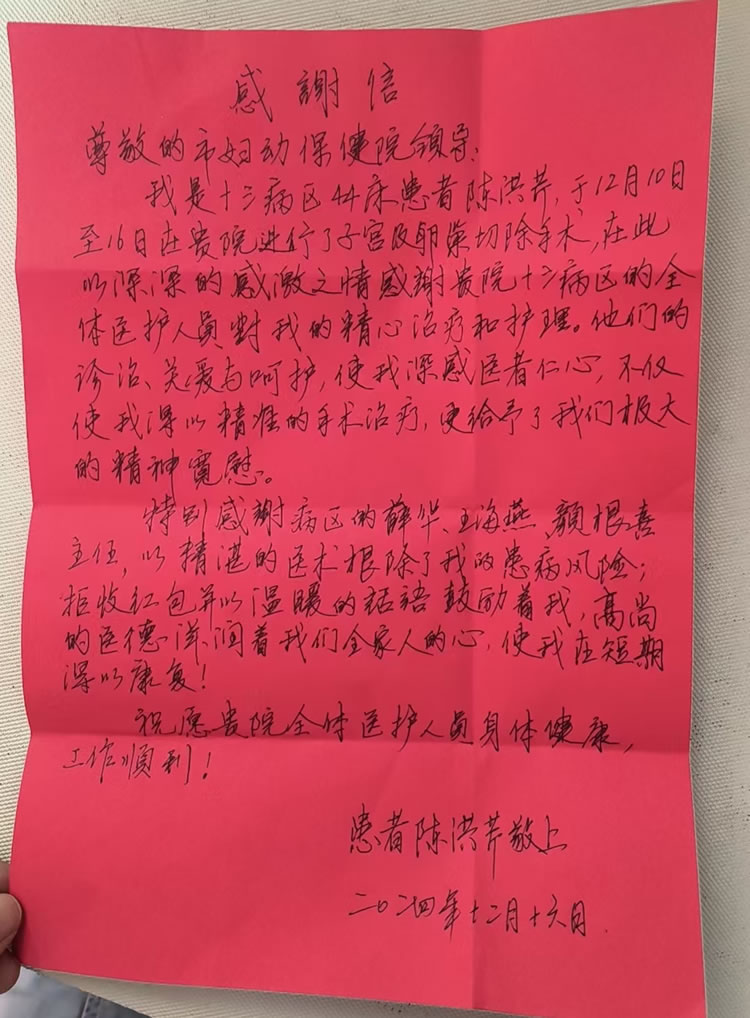 感謝信
尊敬的市妇幼保健院领导:
我是十三病区44床患者陈洪芹,于12月10日
至16日在贵院进行了子宫及卵巢切除手术,在此
以深深的感激之情感謝贵院十三病区的全
体医护人员對我的精心治疗和护理。他们的
诊治、关爱与呵护,使我深感医者仁心,不仅
使我得以精准的手术治疗,更给予了我们极大
的精神寬慰。
特别感謝病区的薛华、王海燕、颜根喜
主任,以精湛的医术根除了我的患病风险;
拒收红包并以温暖的話語鼓励着我,高尚
的医德滋润着我们全家人的心,使我在短期
得以康复!
祝愿贵院全体医护人员身体健康,
工作順利!
患者陈洪芹敬上
二〇二四年十二月十六日.